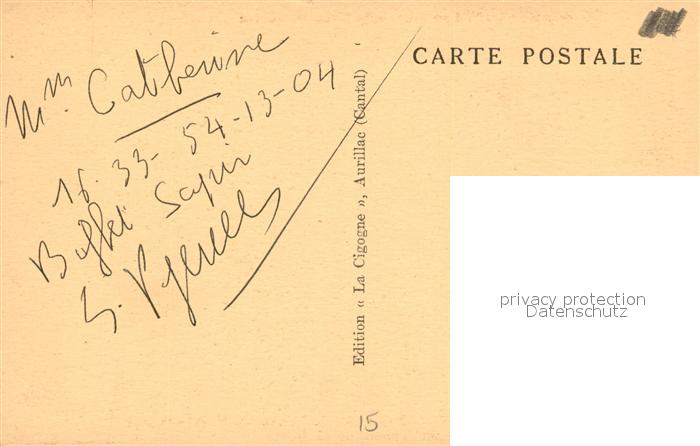 Mm Catherine
16. 33-54-13-04
Buffet Sapin
CARTE POSTALE
Edition « La Cigogne », Aurillac (Cantal)
privacy protection
Datenschutz
15